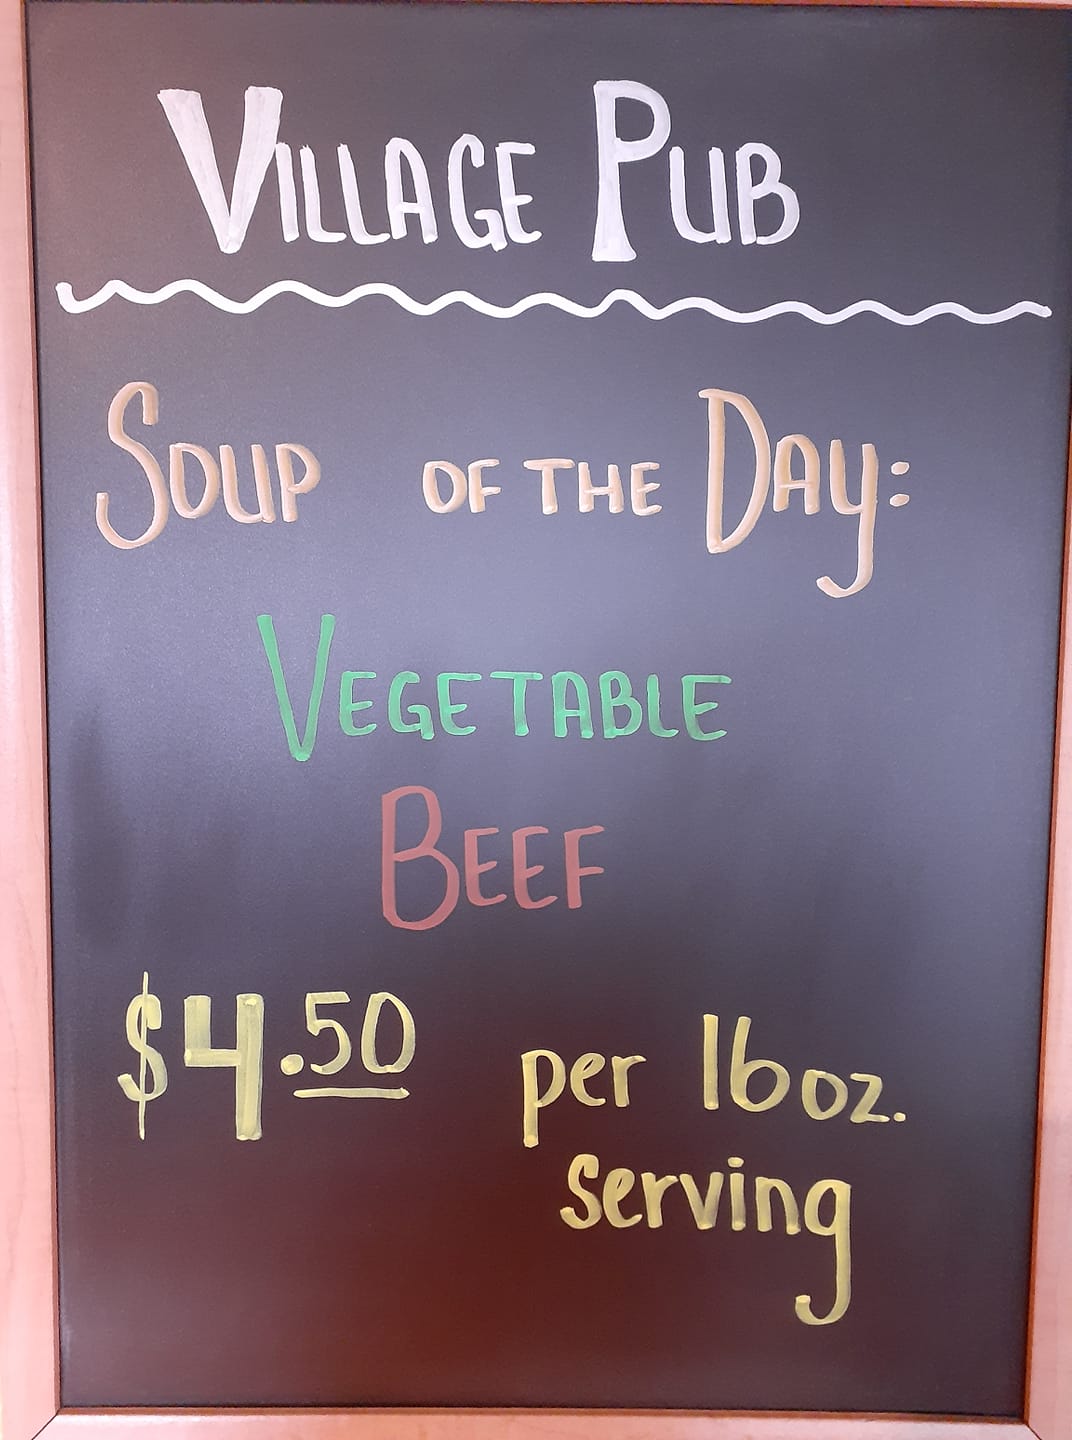 VILLAGE PUB
SOUP OF THE DAY:
VEGETABLE
BEEF
$4.50 per 16oz.
serving